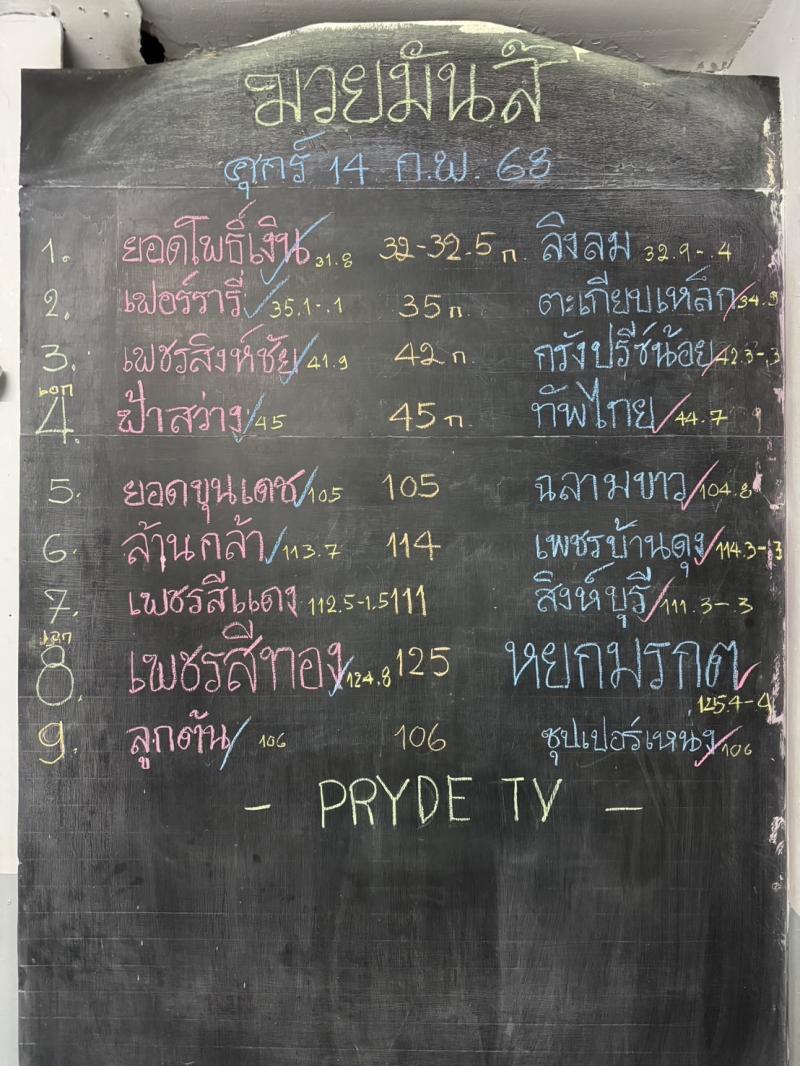 มวยมันส์
ศุกร์ 14 ก.พ. 68
1. ยอดโพธิ์เงิน 31.8 32-32.5 ก. ลิงลม 32.9-.4
2. เฟอร์รารี่ 35.1-.1 35 ก ตะเกียบเหล็ก 34.9
3. เพชรสิงห์ชัย 41.9 42 ก. กรังปรีซ์น้อย 42.3-.3
เอก
4. ฟ้าสว่าง 45 45 ก ทัพไทย 44.7
5. ยอดขุนเดช 105 105 ฉลามขาว 104.8
6. ล้านกล้า 113.7 114 เพชรบ้านดุง 114.3-.3
7. เพชรสีแดง 112.5-1.5 111 สิงห์บุรี 111.3-.3
เอก
8. เพชรสีทอง 124.8 125 หยกมรกต
125.4-.4
9. ลูกต้น 106 106 ซุปเปอร์เหน่ง 106
- PRYDE TV -